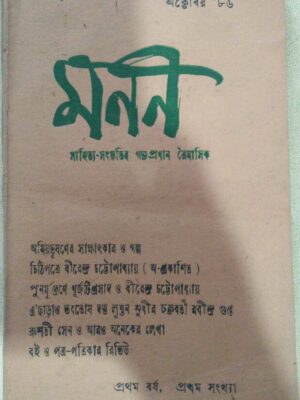 অক্টোবর ৮৬
মনন
সাহিত্য-সংস্কৃতির গল্পপ্রধান ত্রৈমাসিক
অমিয়ভূষণের সাক্ষাৎকার ও গল্প
চিঠিপত্রে বীরেন্দ্র চট্টোপাধ্যায় ( অ-প্রকাশিত )
পুনর্মুদ্রণে ধূর্জটিপ্রসাদ ও বীরেন্দ্র চট্টোপাধ্যায়
এ'ছাড়াও ভবতোষ দত্ত সুধীর চক্রবর্তী রবীন্দ্র গুপ্ত
সেন ও আরও অনেকের লেখা
বই ও পত্র-পত্রিকার রিভিউ
প্রথম বর্ষ, প্রথম সংখ্যা